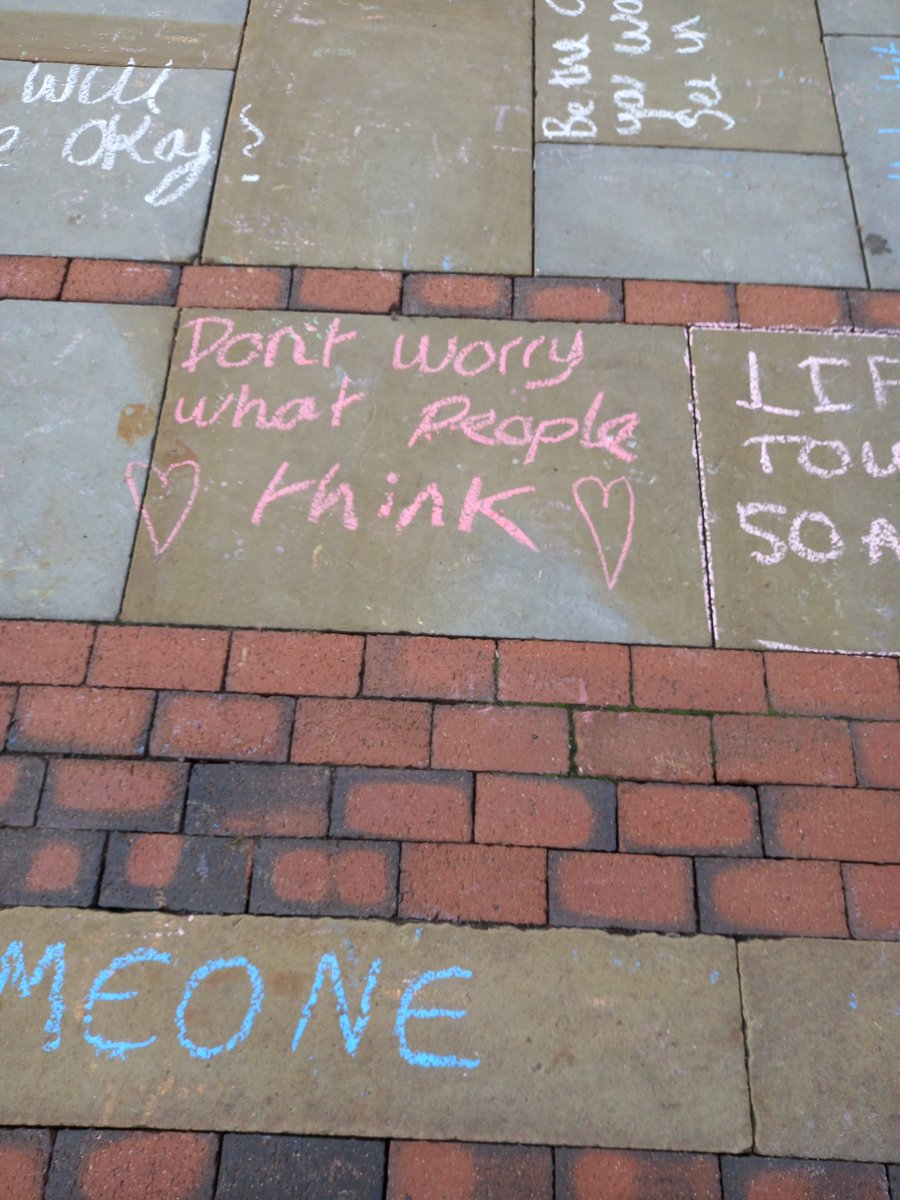 will
okay
Be the
you
in
Don't worry
what People
think
LIF
TOU
SOA
MEONE